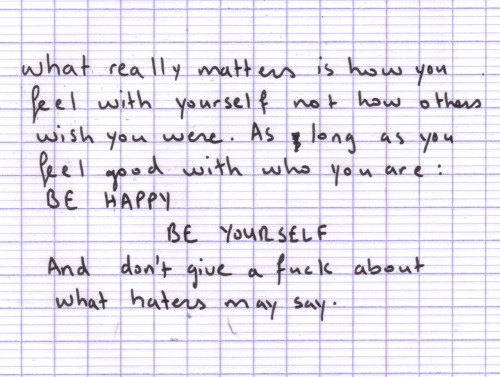 What really matters is how you
feel with yourself not how others
wish you were. As long as you
feel good with who you are:
BE HAPPY
BE YOURSELF
And don't give a fuck about
what haters may say.